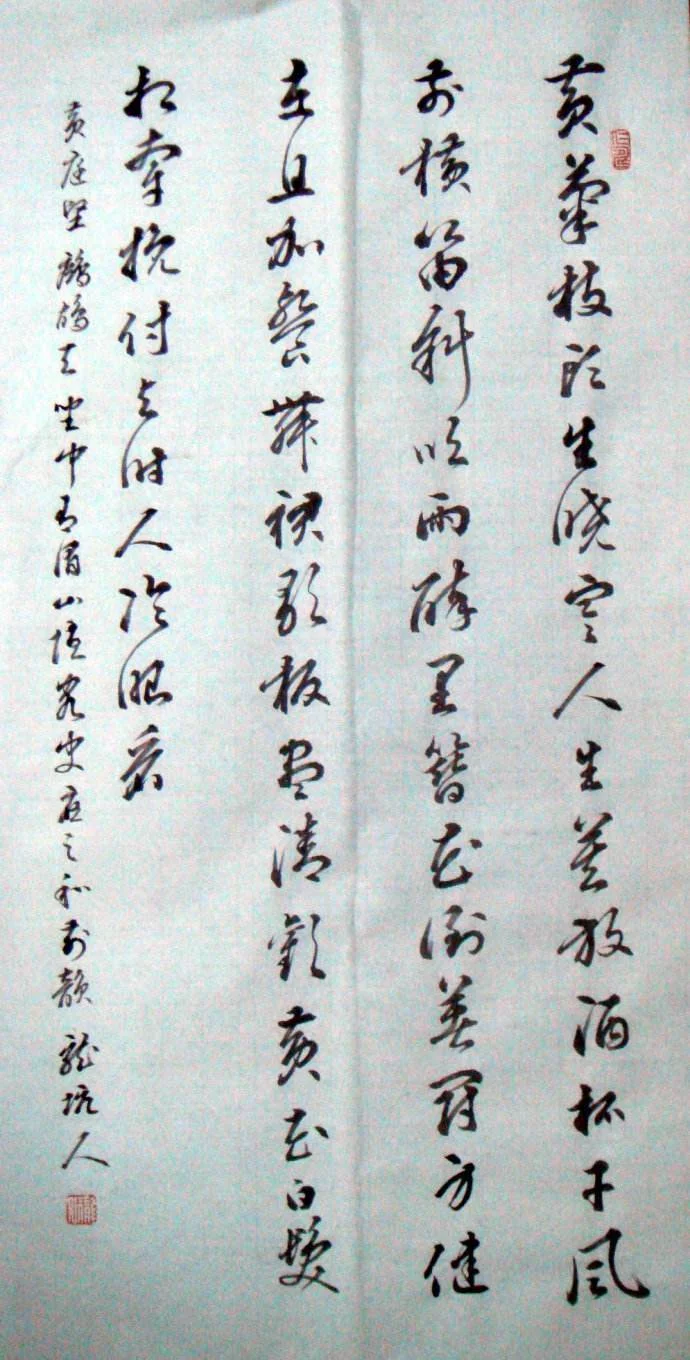 黄菊枝头生晓寒人生莫放酒杯干风
前横笛斜吹雨醉里簪花倒著冠身健
在且加餐舞裙歌板尽清欢黄花白髮
相牵挽付与时人冷眼看
黄庭坚鹧鸪天坐中有眉山隐客史应之和前韵 龍坑人